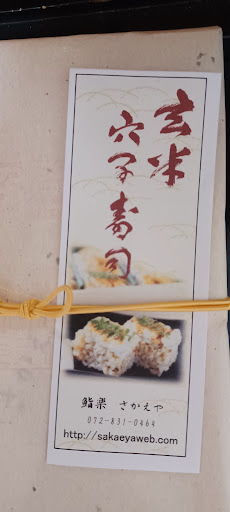 玄米
穴子寿司
鮨樂 さかえや
072-831-0464
http://sakaeyaweb.com